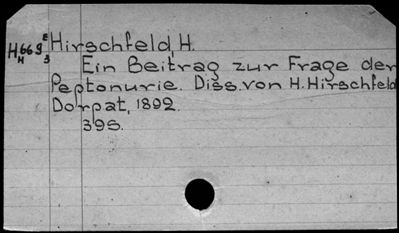 H669 E Hirschfeld, H.
H 3
Ein Beitrag zur Frage der
Peptonurie. Diss. von H. Hirschfeld
Dorpat, 1892.
39S.